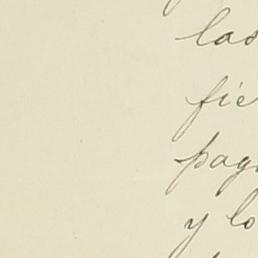 las
fie
pag
y lo